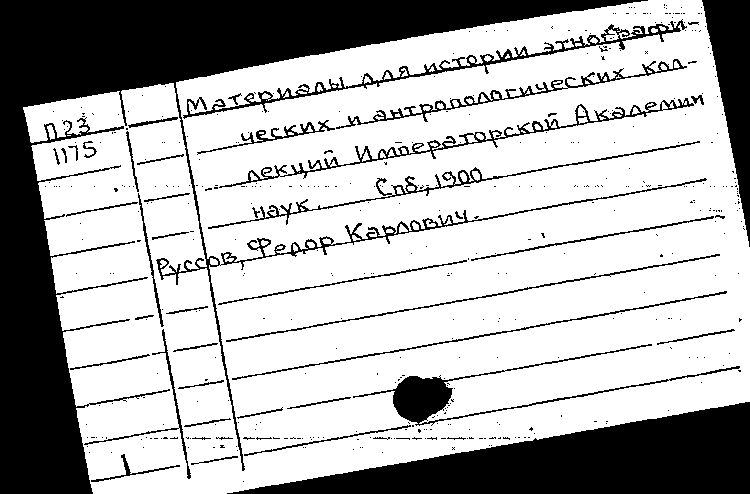 П23
1175
Материалы для истории этнографи-
ческих и антропологических кол-
лекций Императорской Академии
наук. Спб., 1900.
Руссов, Федор Карлович.